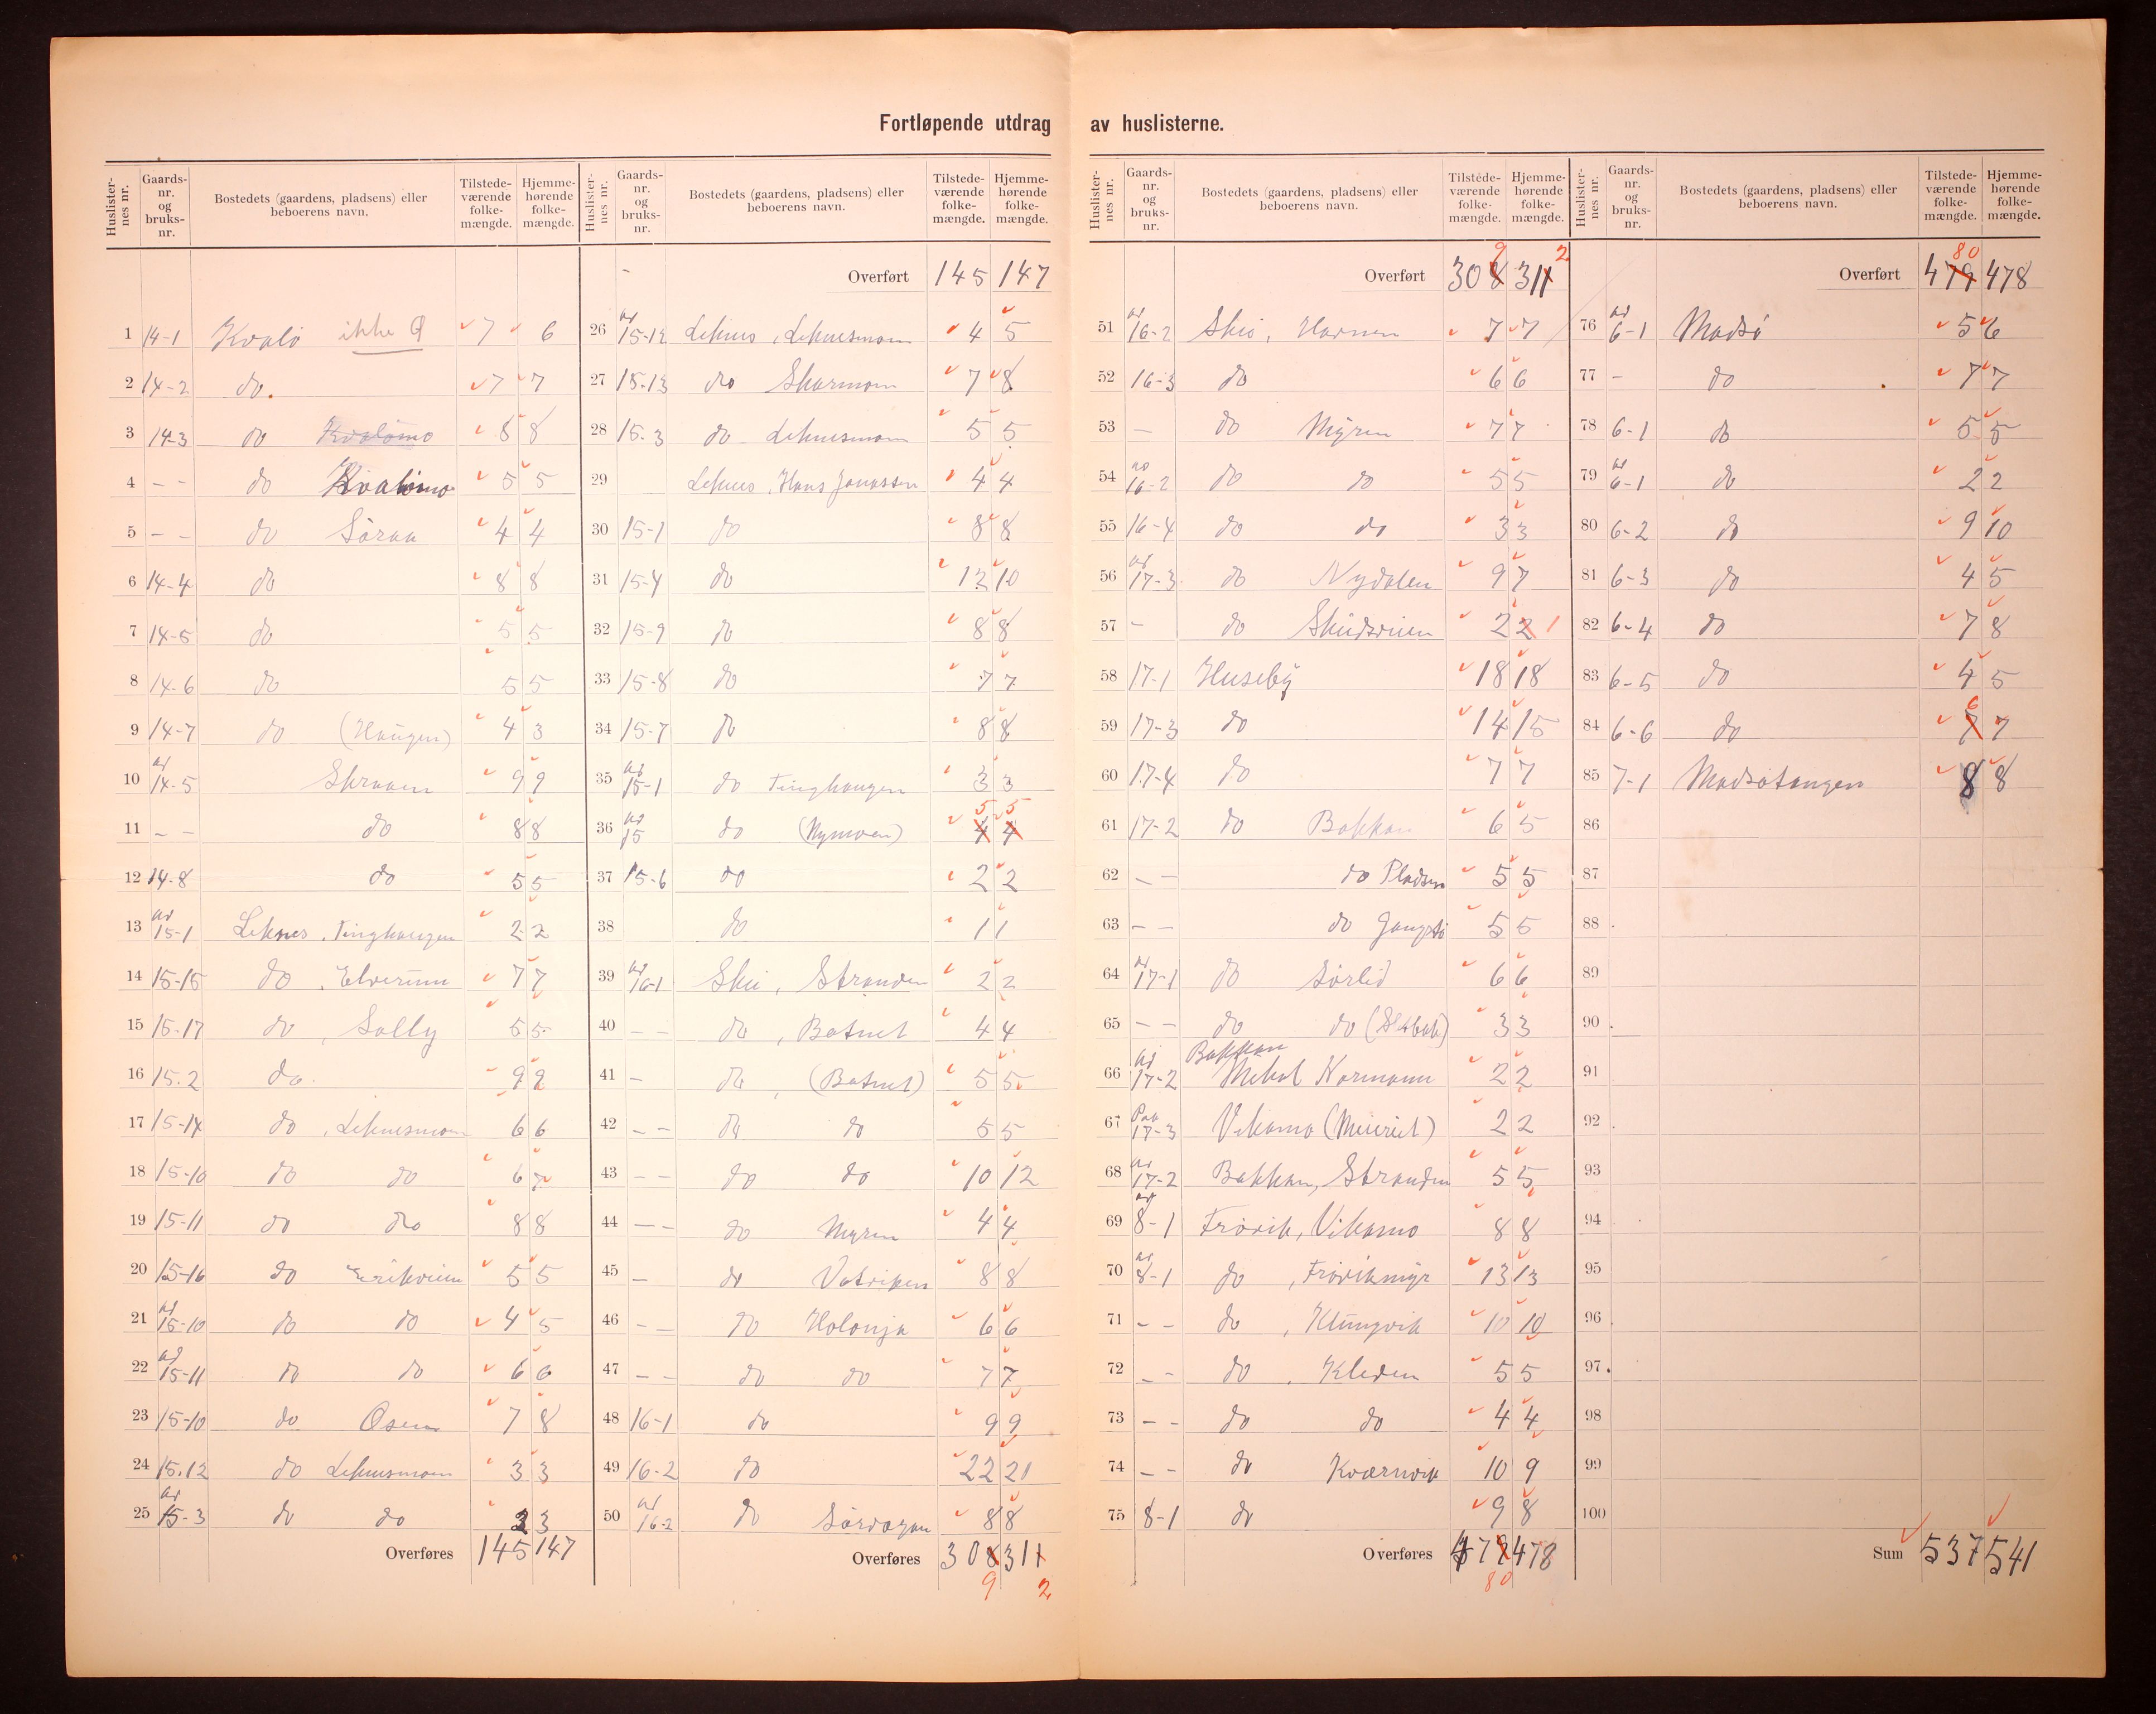 Fortløpende utdrag av huslisterne.
Huslister-nes nr. Gaards-nr. og bruks-nr. Bostedets (gaardens, pladsens) eller beboerens navn. Tilstede-værende folke-mængde. Hjemme-hørende folke-mængde.
1 14-1 Kvalö ikke 7 6
2 14-2 do. 7 7
3 14-3 do Kvalömo 8 8
4 - - do Kvalömo 5 5
5 - - do Söraa 4 4
6 14-4 do 8 8
7 14-5 do 5 5
8 14-6 do 5 5
9 14-7 do (Haugen) 4 3
10 av 14-5 Skraaen 9 9
11 - - do 8 8
12 14-8 do 5 5
13 av 15-1 Leknes, Tinghaugen 2 2
14 15-15 do, Elverum 7 7
15 15-17 do, Solly 5 5
16 15.2 do. 9 9
17 15-14 do, Leknesmoen 6 6
18 15-10 do do 6 7
19 15-11 do do 8 8
20 15-16 do 5 5
21 av 15-10 do do 4 5
22 av 15-11 do do 6 6
23 15-10 do Osen 7 8
24 15.12 do Leknesmoen 3 3
25 av 15-3 do do 3 3
Overføres 145 147
Huslister-nes nr. Gaards-nr. og bruks-nr. Bostedets (gaardens, pladsens) eller beboerens navn. Tilstede-værende folke-mængde. Hjemme-hørende folke-mængde.
Overført 145 147
26 av 15-12 Leknes, Leknesmoen 4 5
27 15-13 do Skarmoen 7 8
28 15.3 do Leknesmoen 5 5
29 Leknes, Hans Jonassen 4 4
30 15-1 do 8 8
31 15-4 do 12 10
32 15-9 do 8 8
33 15-8 do 7 7
34 15-7 do 8 8
35 av 15-1 do Tinghaugen 3 3
36 av 15 do (Nymoen) 4 5 4 5
37 15-6 do 2 2
38 do 1 1
39 av 16-1 Skei, Stranden 2 2
40 - - do, Botnet 4 4
41 - do, (Botnet) 5 5
42 - - do do 5 5
43 - - do do 10 12
44 - - do Myren 4 4
45 - do Vatviken 8 8
46 - - do Holonja 6 6
47 - - do do 7 7
48 16-1 do 9 9
49 16-2 do 22 21
50 av 16-2 do Sördagen 8 8
Overføres 308 9 311 2
Huslister-nes nr. Gaards-nr. og bruks-nr. Bostedets (gaardens, pladsens) eller beboerens navn. Tilstede-værende folke-mængde. Hjemme-hørende folke-mængde.
Overført 308 9 311 2
51 av 16-2 Skei, Harnen 7 7
52 16-3 do 6 6
53 - do Myren 7 7
54 av 16-2 do do 5 5
55 16-4 do do 3 3
56 av 17-3 do Nydalen 9 7
57 - do 2 2 1
58 17-1 Huseby 18 18
59 17-3 do 14 15
60 17-4 do 7 7
61 17-2 do Bakkan 6 5
62 - - do Pladsen 5 5
63 - - do 5 5
64 av 17-1 do Sörlid 6 6
65 - - do do 3 3
66 av 17-2 Bakkan Mikal Normann 2 2
67 17-3 Vikamo (Meieriet) 2 2
68 av 17-2 Bakkan, Stranden 5 5
69 av 8-1 Frövik, Vikamo 8 8
70 av 8-1 do, Frövikmyr 13 13
71 - - do, Klungvik 10 10
72 - - do, Kleven 5 5
73 - - do do 4 4
74 - - do Kværnvik 10 9
75 8-1 do 9 8
Overføres 479 80 478
Huslister-nes nr. Gaards-nr. og bruks-nr. Bostedets (gaardens, pladsens) eller beboerens navn. Tilstede-værende folke-mængde. Hjemme-hørende folke-mængde.
Overført 479 80 478
76 av 6-1 Madsö 5 6
77 - do 7 7
78 6-1 do 5 5
79 av 6-1 do 2 2
80 6-2 do 9 10
81 6-3 do 4 5
82 6-4 do 7 8
83 6-5 do 4 5
84 6-6 do 7 6 7
85 7-1 Madsötangen 8 8
86
87
88
89
90
91
92
93
94
95
96
97
98
99
100
Sum 537 541